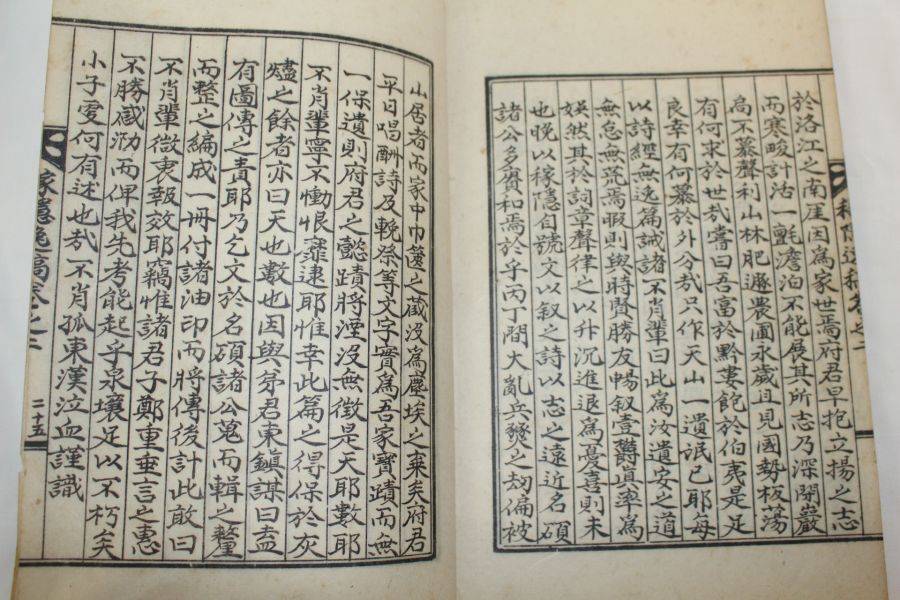 於洛江之南崖因爲家世焉府君早抱立揚之志
而寒畯計活一氈澹泊不能展其所志乃深閉巖
扃不慕聲利山林肥遯農圃永歲且見國勢板蕩
有何求於世哉嘗曰吾富於黔婁飽於伯夷是足
良幸有何慕於外分哉只作天山一遺氓已耶每
以詩經無逸爲誡諸不肖輩曰此爲汝遺安之道
無怠無荒焉暇則與時賢勝友暢叙壹欝眞率爲
娛然其於詞章聲律之以升沉進退爲憂喜則未
也晚以稼隱自號文以叙之詩以志之遠近名碩
諸公多賡和焉於乎丙丁間大亂兵發之刼偏被
山居者而家中巾篋之藏沒爲塵埃之棄矣府君
平日唱酬詩及輓祭等文字實爲吾家寶蹟而無
一保遺則府君之懿蹟將湮沒無徵是天耶數耶
不肖輩寧不慟恨靡逮耶惟幸此篇之得保於灰
燼之餘者亦曰天也數也因與弟君東鎭謀曰盍
有圖傳之責耶乃乞文於名碩諸公蒐而輯之釐
而整之編成一冊付諸油印而將傳後計此敢曰
不肖輩微衷報效耶竊惟諸君子鄭重垂言之惠
不勝感泐而俾我先考能起乎泉壤足以不朽矣
小子更何有述也哉不肖孤東漢泣血謹識
稼隱逸稿卷之二
二十五